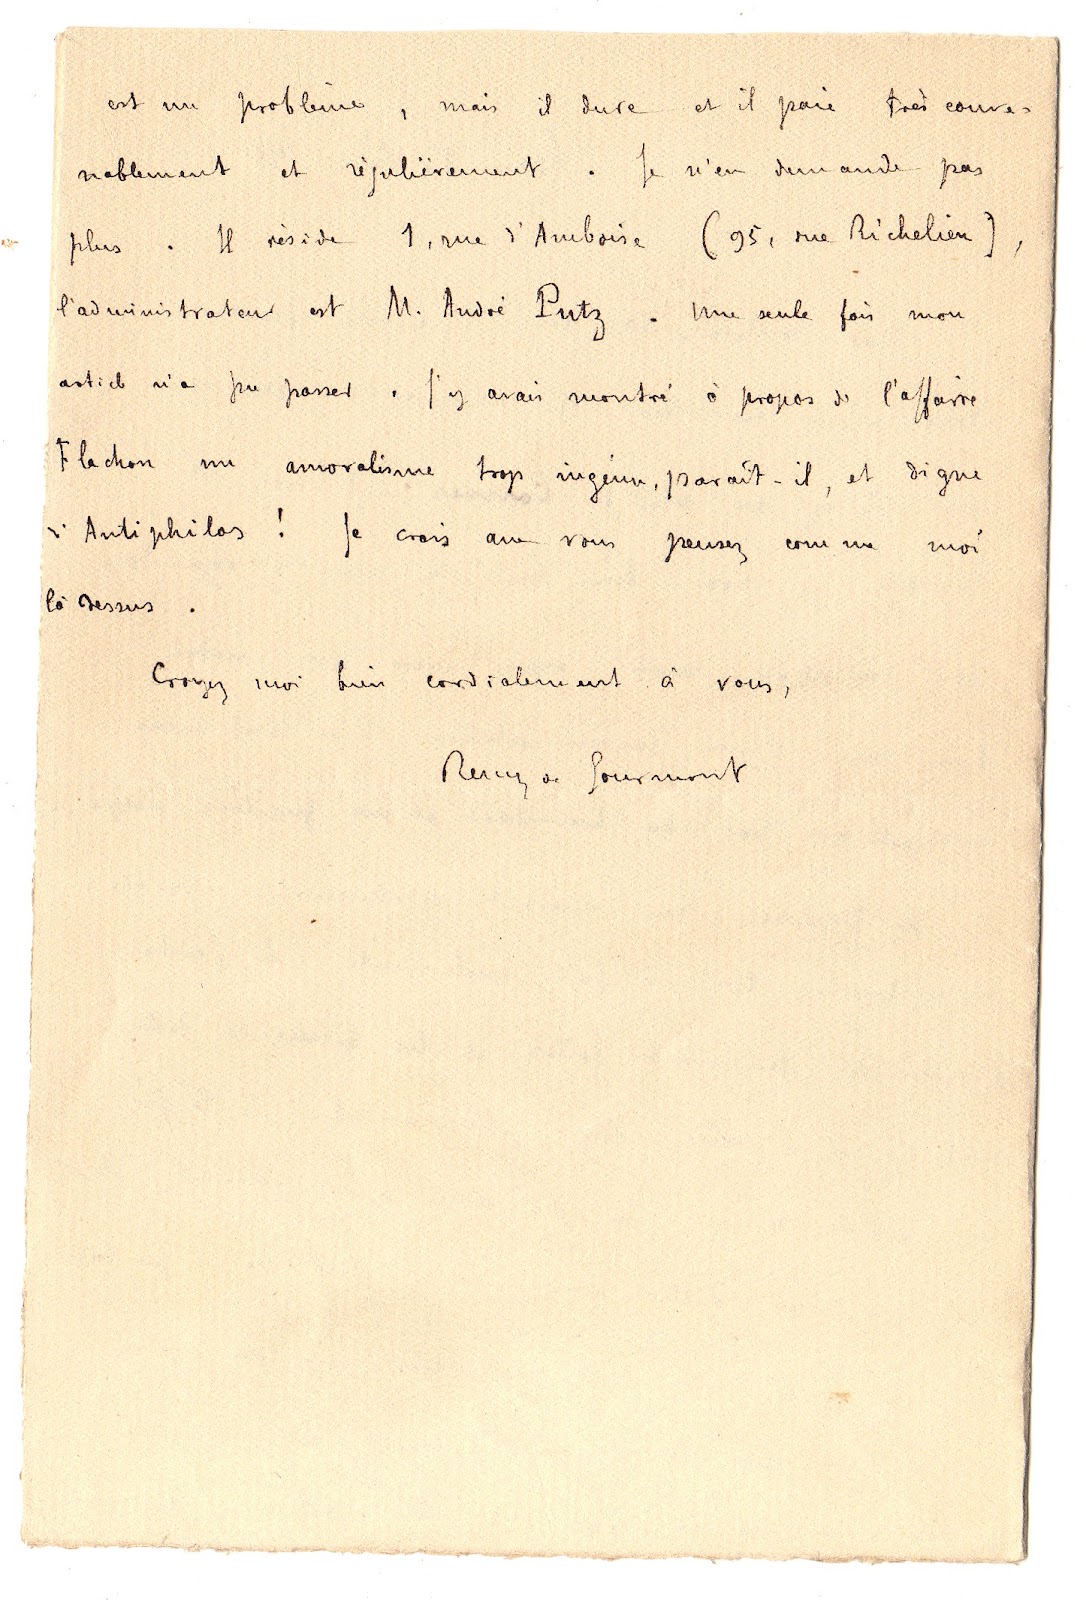 est un problème, mais il dure et il paie très conve-
nablement et régulièrement. Je n'en demande pas
plus. Il réside 1, rue d'Amboise (95, rue Richelieu),
l'administrateur est M. André Putz. Une seule fois mon
article n'a pu passer. J'y avais montré à propos de l'affaire
Flachon un amoralisme trop ingénu, paraît-il, et digne
d'Antiphilos ! Je crois que vous pensez comme moi
là dessus.
Croyez moi bien cordialement à vous,
Remy de Gourmont